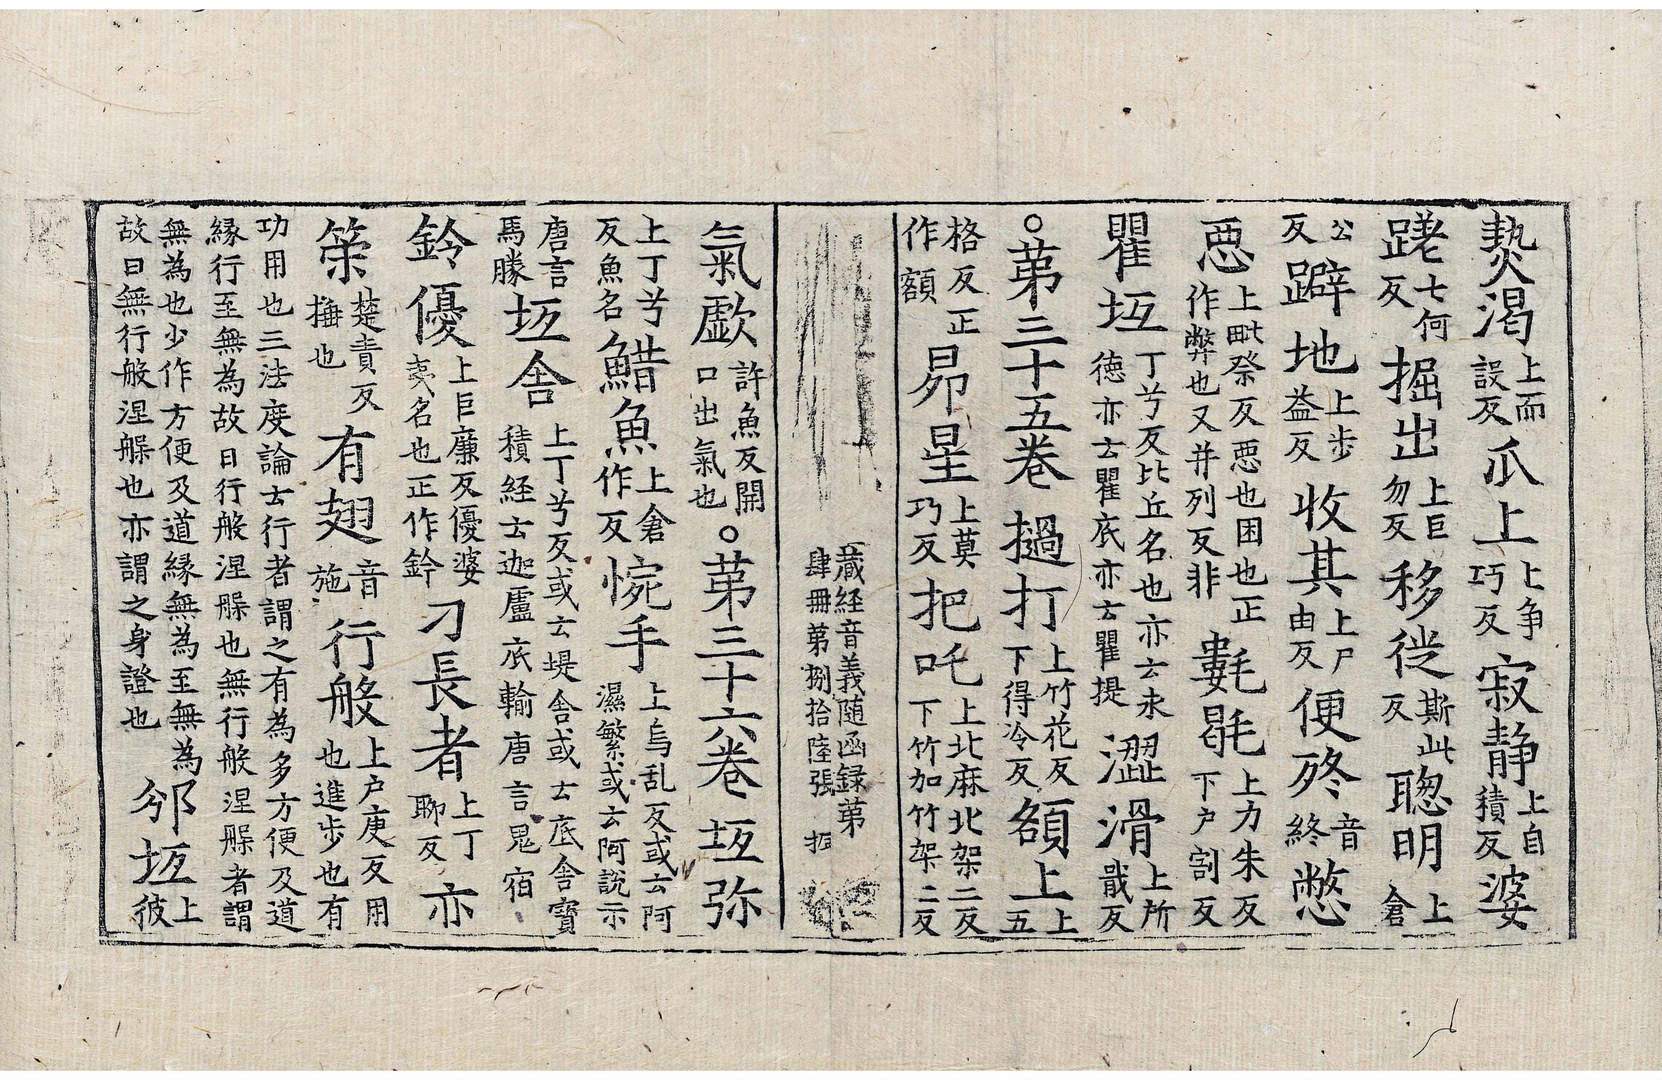 爇渴上而設反瓜上上争巧反寂静上自積反婆
蹉七何反掘出上巨勿反移徙斯此反聦明上倉
公反躃地上步益反收其上尸由反便殀音終憋
𢙣上毗祭反𢙣也困也正作弊也又并列反非氀毼上力朱反下户割反
瞿坘丁兮反比丘名也亦云求德亦云瞿底亦云瞿提澀滑上所戢反
○苐三十五卷撾打上竹花反下得冷反額上上五
格反正作額昴星上莫巧反把吒上北麻北架二反下竹加竹架二反
藏経音義随函録苐
肆冊苐捌拾陸張
氣歔許魚反開口出氣也○苐三十六卷坘弥
上丁兮反魚名䱜魚上倉作反惋手上烏乱反或云阿濕繁或云阿說示
唐言馬勝坘舍上丁兮反或云堤舍或云底舍寶積経云迦盧底輸唐言鬼宿
鈴優上巨廉反優婆夷名也正作鈐刁長者上丁聊反亦
筞楚責反捶也有翅音施行般上户庚反用也進步也有
功用也三法度論云行者謂之有為多方便及道
縁行至無為故曰行般涅槃也無行般涅槃者謂
無為也少作方便及道縁無為至無為
故曰無行般涅槃也亦謂之身證也邠坘上彼